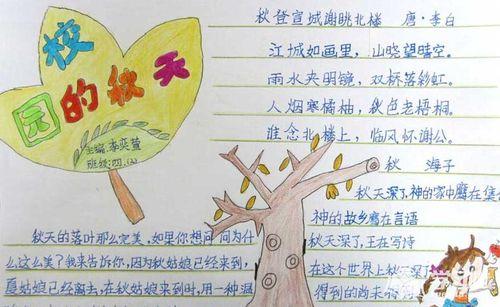 校园的秋天
主编：李奕萱
班级：四.(2)
秋登宣城谢眺北楼 唐·李白
江城如画里，山晓望晴空。
雨水夹明镜，双桥落彩虹。
人烟寒橘柚，秋色老梧桐。
谁念北楼上，临风怀谢公。
秋 海子
秋天深了，神的家中鹰在集
神的故乡鹰在言语
秋天深了，王在写诗
在这个世界上秋天深了
得到的尚未得到
秋天的落叶那么完美，如果你想问问为什
么这么美？我来告诉你，因为秋姑娘已经来到，
夏姑娘已经离去，在秋姑娘来到时，用一种温